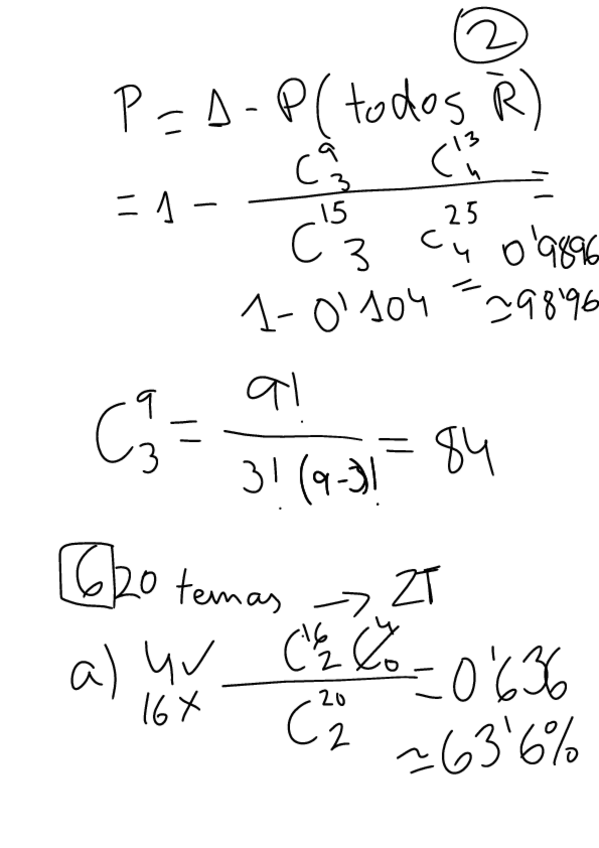 2
P = 1 - P(todos R̄)
= 1 - (C₃⁹ C₄¹³) / (C₃¹⁵ C₄²⁵) = 0'9896
1 - 0'104 = ≃98'96
C₃⁹ = 9! / 3! (9-3)! = 84
6 20 temas → 2T
a) 4✓ 16X (C₂¹⁶ C₀⁴) / C₂²⁰ = 0'636
≃63'6%